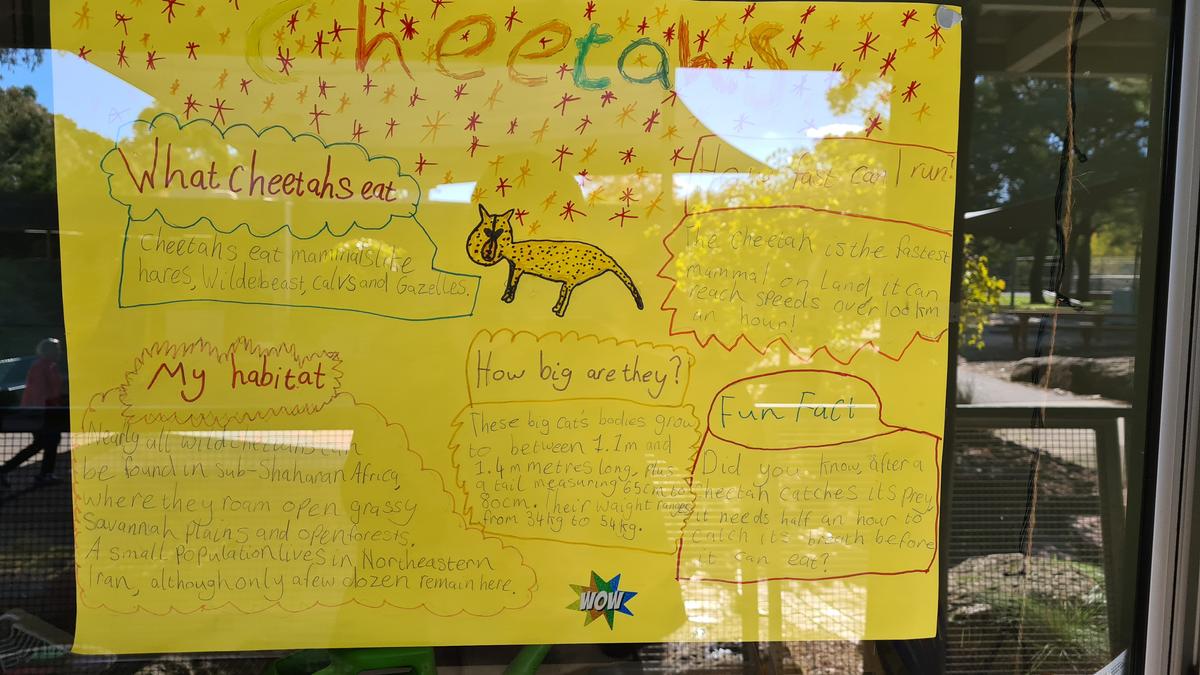 Cheetahs
What Cheetahs eat
Cheetahs eat mammals like
hares, Wildebeast, calvs and Gazelles.
How fast can I run?
The Cheetah is the fastest
mammal on Land it can
reach speeds over 100km
an hour!
My habitat
Nearly all wild cheetahs can
be found in sub-Shaharan Africa,
where they roam open grassy
Savannah plains and open forests.
A small population lives in Northeastern
Iran, although only a few dozen remain here.
How big are they?
These big cat's bodies grow
to between 1.1m and
1.4m metres long, plus
a tail measuring 65cm to
80cm. Their waight ranges
from 34kg to 54kg.
Fun Fact
Did you know, after a
Cheetah catches its prey,
it needs half an hour to
catch its breath before
it can eat?
WOW